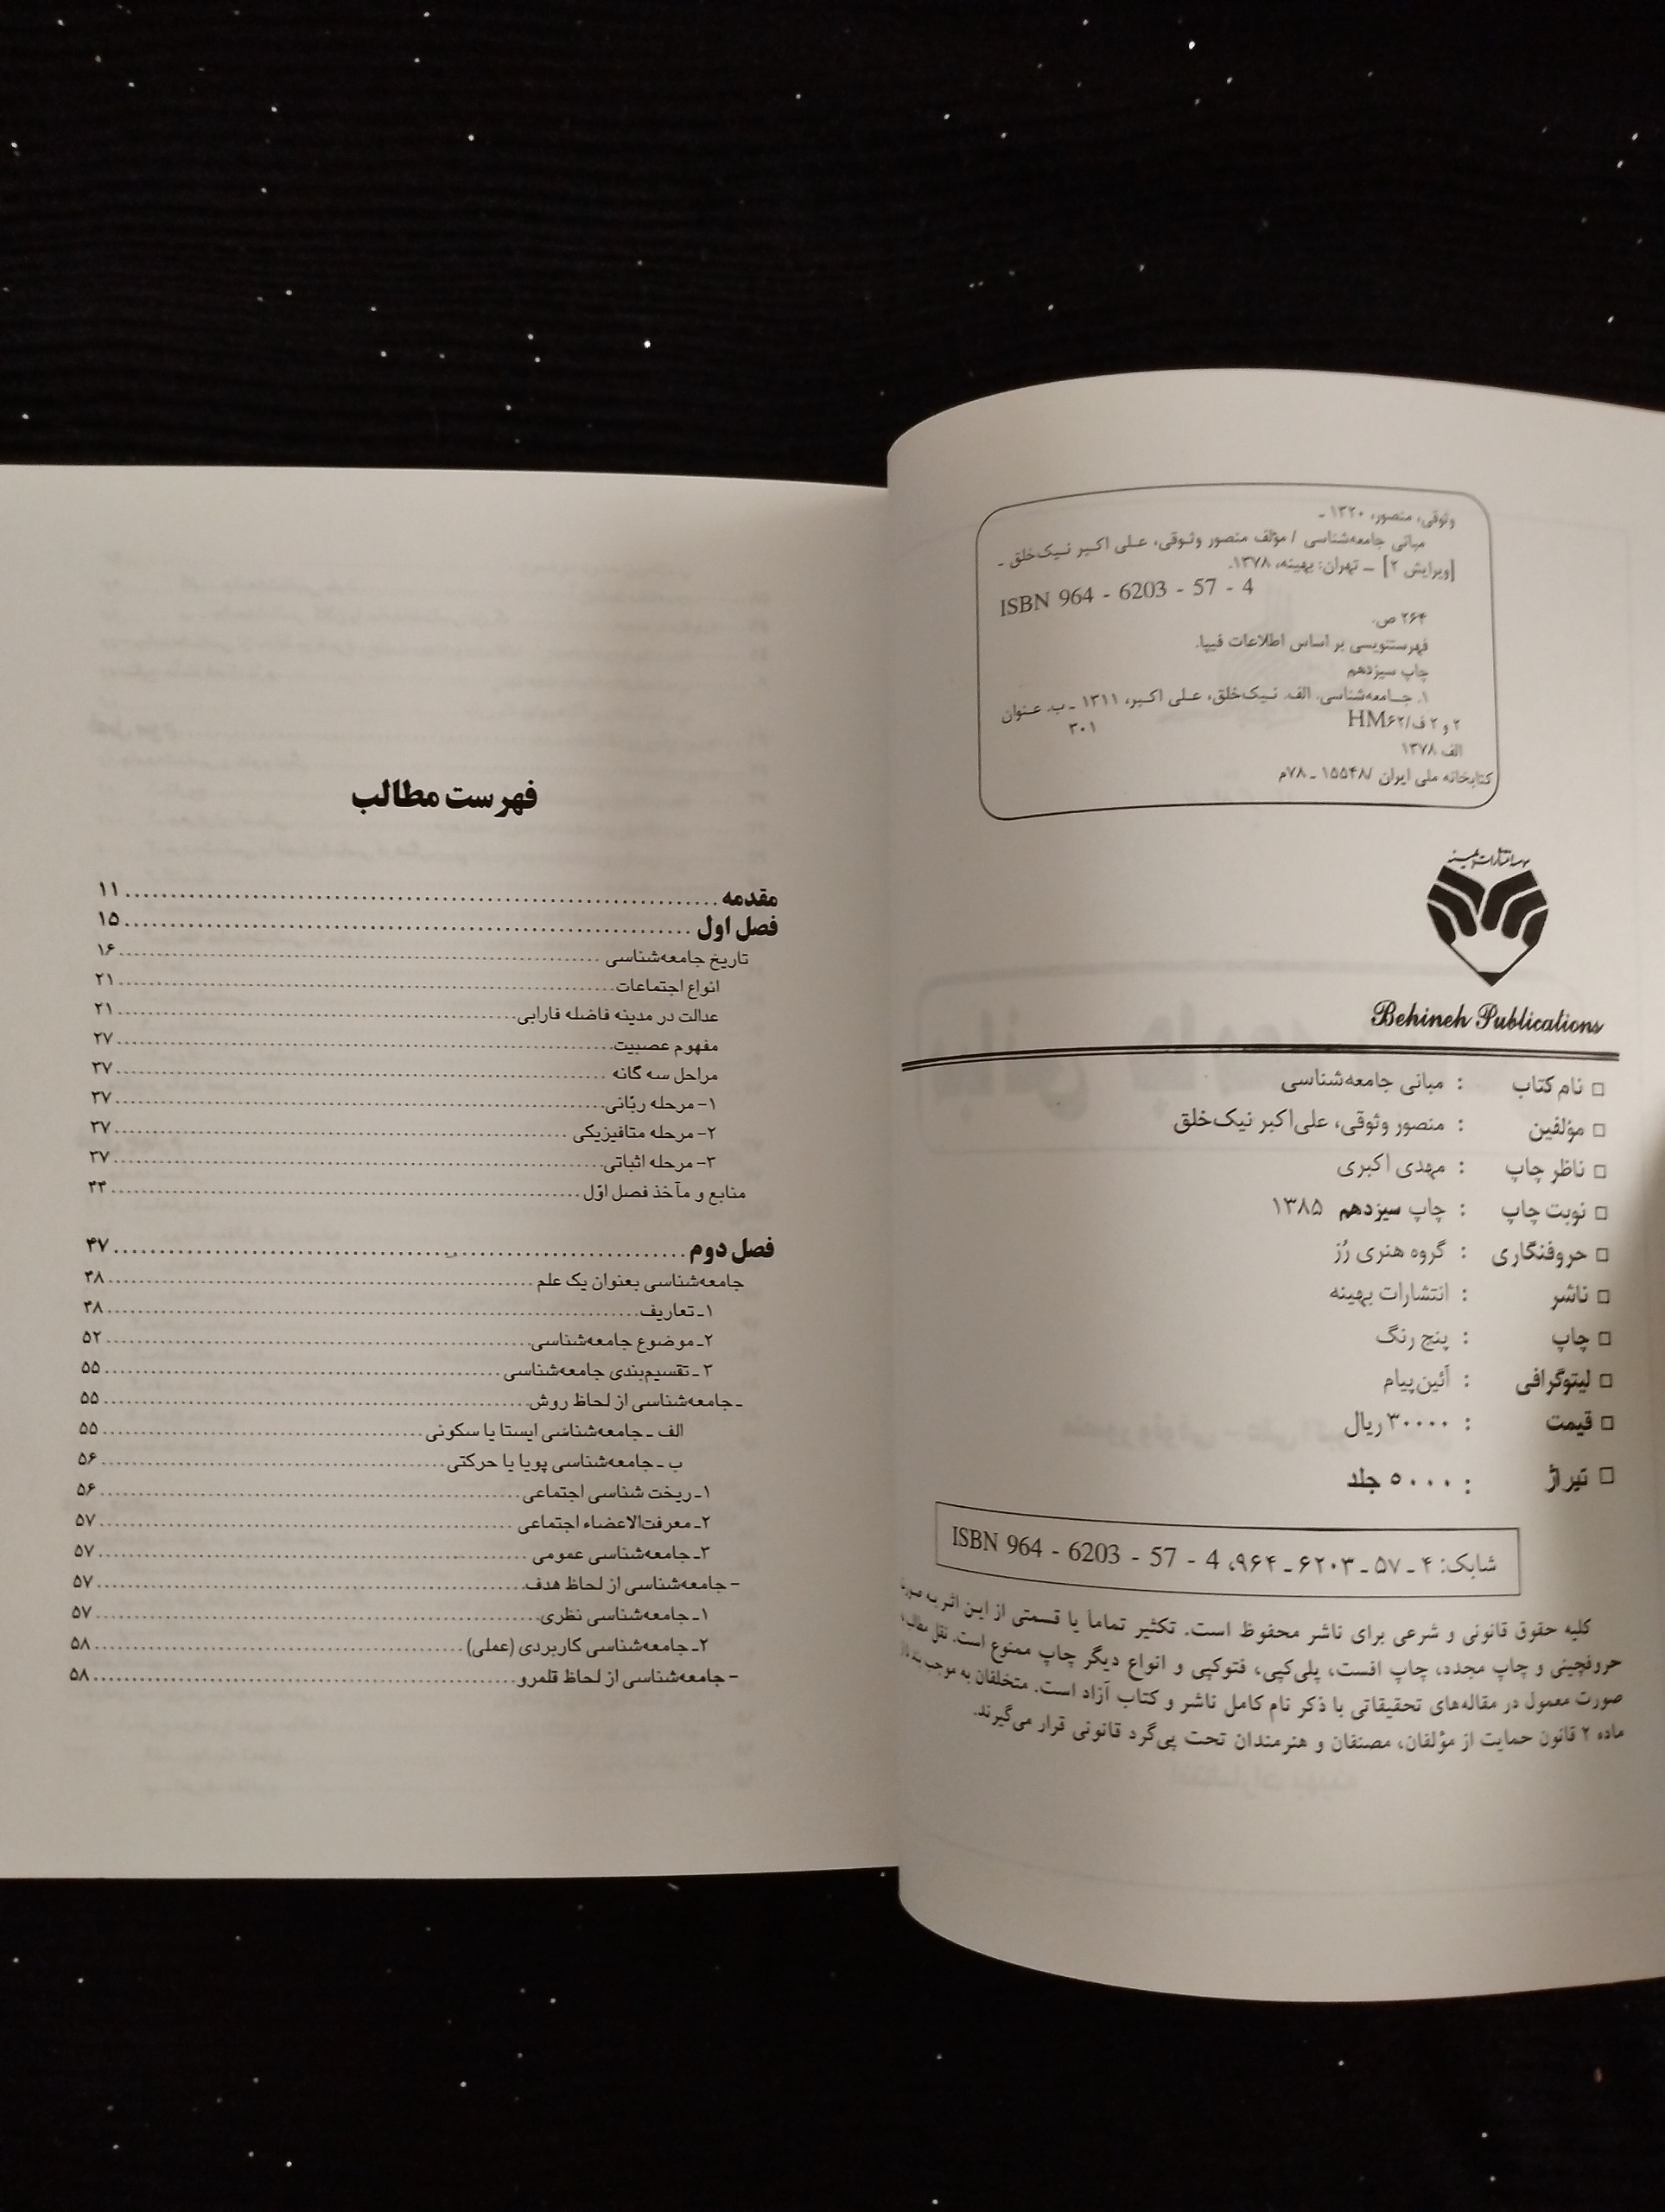 وثوقی، منصور، ۱۳۲۰ ـ
مبانی جامعه‌شناسی / مؤلف منصور وثوقی، علی اکبر نیک‌خلق ـ
[ویرایش ۲] ـ تهران: بهینه، ۱۳۷۸.
ISBN 964 - 6203 - 57 - 4
۲۶۴ ص.
فهرستنویسی بر اساس اطلاعات فیپا.
چاپ سیزدهم
۱. جامعه‌شناسی. الف. نیک‌خلق، علی اکبر، ۱۳۱۱ ـ ب. عنوان
۲ و ۲ ف/HM۶۲ ۳۰۱
الف ۱۳۷۸
کتابخانه ملی ایران /۱۵۵۴۸ ـ ۷۸م
موسسه انتشارات بهینه
Behineh Publications
□ نام کتاب : مبانی جامعه‌شناسی
□ مؤلفین : منصور وثوقی، علی‌اکبر نیک‌خلق
□ ناظر چاپ : مهدی اکبری
□ نوبت چاپ : چاپ سیزدهم ۱۳۸۵
□ حروفنگاری : گروه هنری رُز
□ ناشر : انتشارات بهینه
□ چاپ : پنج رنگ
□ لیتوگرافی : آئین‌پیام
□ قیمت : ۳۰۰۰۰ ریال
□ تیراژ : ۵۰۰۰ جلد
شابک: ۴ ـ ۵۷ ـ ۶۲۰۳ ـ ۹۶۴، ISBN 964 - 6203 - 57 - 4
کلیه حقوق قانونی و شرعی برای ناشر محفوظ است. تکثیر تماماً یا قسمتی از این اثر به صورت
حروفچینی و چاپ مجدد، چاپ افست، پلی‌کپی، فتوکپی و انواع دیگر چاپ ممنوع است. نقل مطالب
صورت معمول در مقاله‌های تحقیقاتی با ذکر نام کامل ناشر و کتاب آزاد است. متخلفان به موجب
ماده ۲ قانون حمایت از مؤلفان، مصنفان و هنرمندان تحت پی‌گرد قانونی قرار می‌گیرند.
فهرست مطالب
مقدمه ........ ۱۱
فصل اول ........ ۱۵
تاریخ جامعه‌شناسی ........ ۱۶
انواع اجتماعات ........ ۲۱
عدالت در مدینه فاضله فارابی ........ ۲۱
مفهوم عصبیت ........ ۲۷
مراحل سه گانه ........ ۳۷
۱- مرحله ربّانی ........ ۳۷
۲- مرحله متافیزیکی ........ ۳۷
۳- مرحله اثباتی ........ ۳۷
منابع و مآخذ فصل اوّل ........ ۴۴
فصل دوم ........ ۴۷
جامعه‌شناسی بعنوان یک علم ........ ۴۸
۱ـ تعاریف ........ ۴۸
۲ـ موضوع جامعه‌شناسی ........ ۵۲
۳ ـ تقسیم‌بندی جامعه‌شناسی ........ ۵۵
ـ جامعه‌شناسی از لحاظ روش ........ ۵۵
الف ـ جامعه‌شناسی ایستا یا سکونی ........ ۵۵
ب ـ جامعه‌شناسی پویا یا حرکتی ........ ۵۶
۱ـ ریخت شناسی اجتماعی ........ ۵۶
۲ـ معرفت‌الاعضاء اجتماعی ........ ۵۷
۳ـ جامعه‌شناسی عمومی ........ ۵۷
- جامعه‌شناسی از لحاظ هدف ........ ۵۷
۱ـ جامعه‌شناسی نظری ........ ۵۷
۲ـ جامعه‌شناسی کاربردی (عملی) ........ ۵۸
- جامعه‌شناسی از لحاظ قلمرو ........ ۵۸